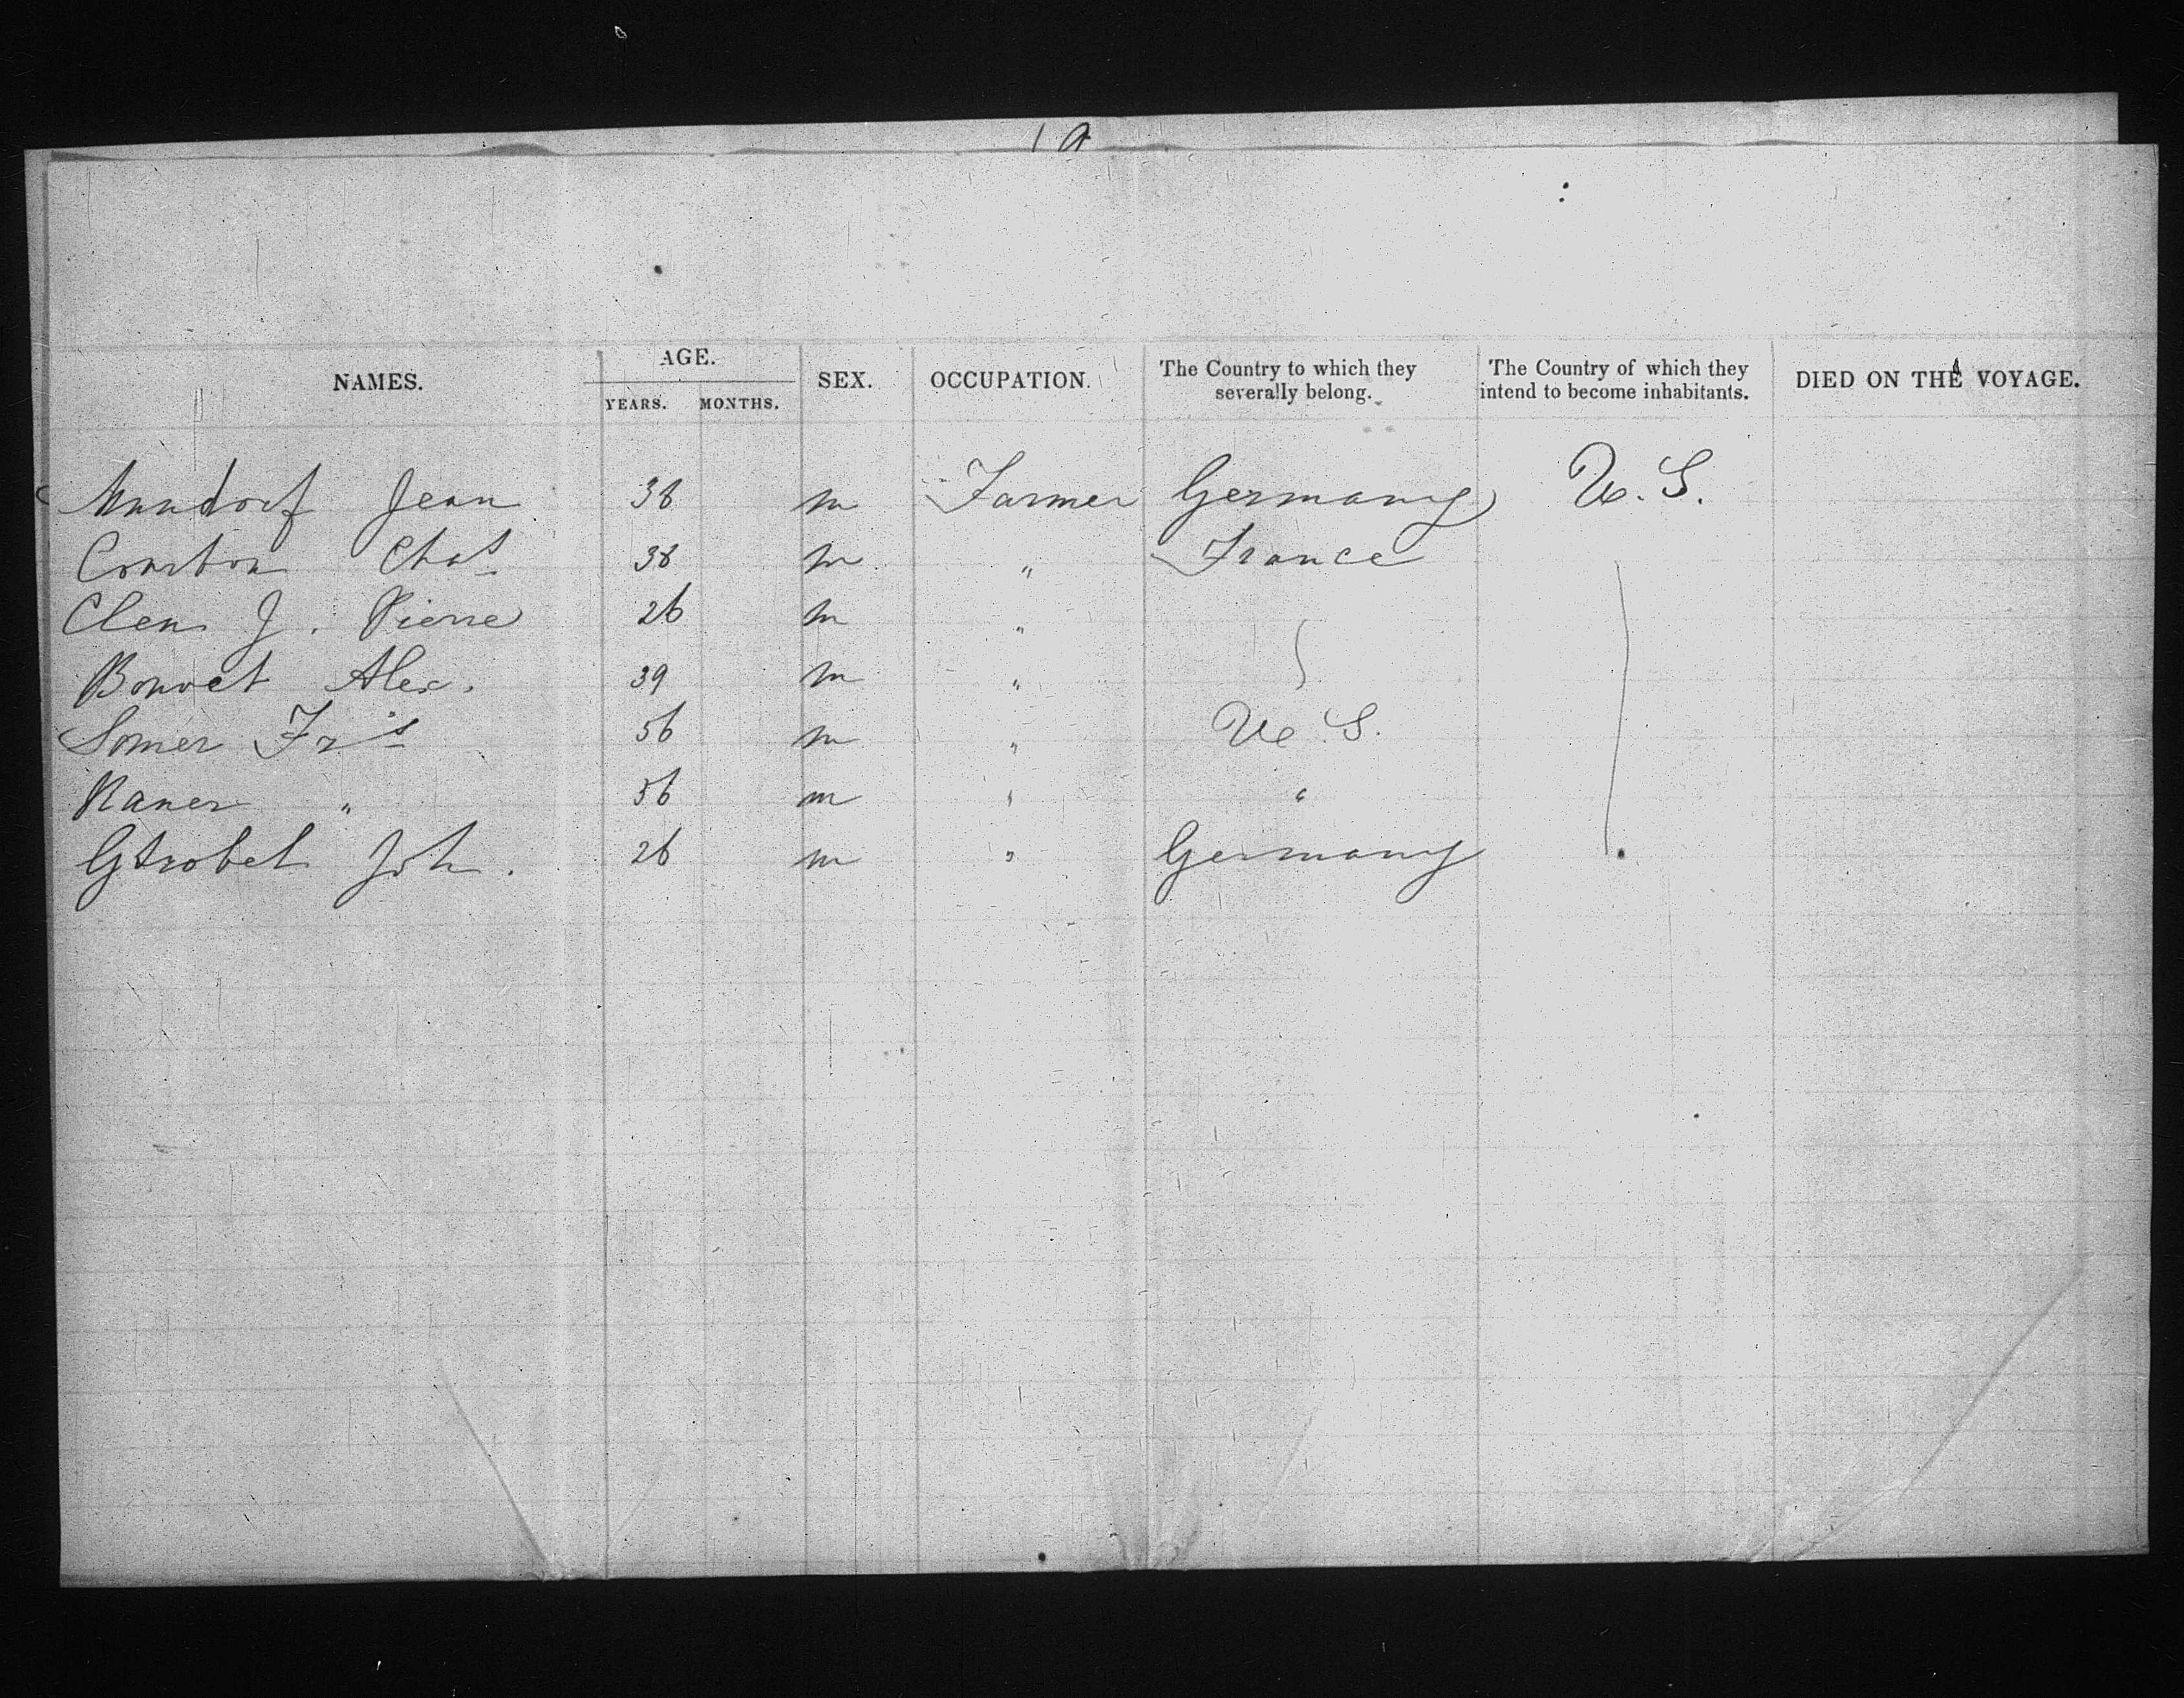 1 a
NAMES. AGE. YEARS. MONTHS. SEX. OCCUPATION. The Country to which they severally belong. The Country of which they intend to become inhabitants. DIED ON THE VOYAGE.
Jean 38 m Farmer Germany U. S.
Courbon Chas 38 m " France
Clem J. Pierre 26 m "
Bouvet Alex. 39 m "
Somer Frs 56 m " U. S.
Raner " 56 m " "
Gstrobel Joh. 26 m " Germany